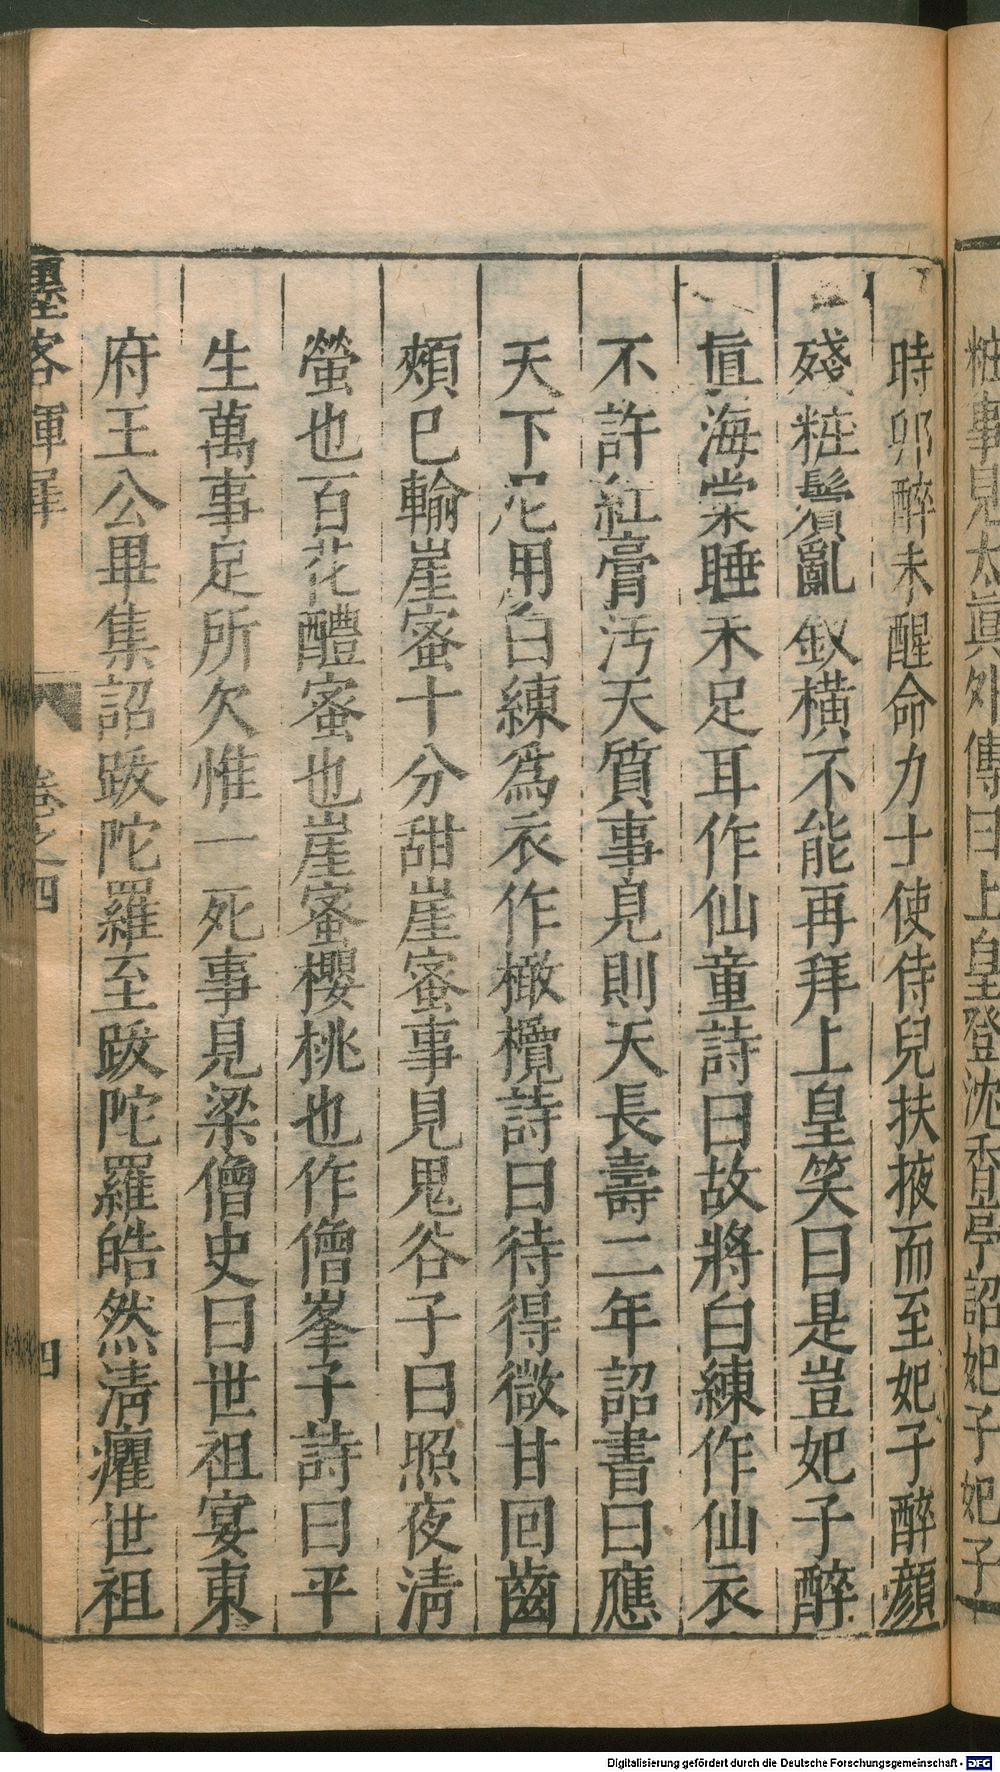 粧事見太眞外傳曰上皇登沈香亭詔妃子妃子
時卯醉未醒命力士使侍兒扶掖而至妃子醉顔
殘粧鬢亂釵橫不能再拜上皇笑曰是豈妃子醉
眞海棠睡未足耳作仙童詩曰故將白練作仙衣
不許紅膏汚天質事見則天長壽二年詔書曰應
天下尼用白練爲衣作橄欖詩曰待得微甘回齒
頰巳輸崖蜜十分甜崖蜜事見鬼谷子曰照夜淸
螢也百花醴蜜也崖蜜櫻桃也作僧峯子詩曰平
生萬事足所欠惟一死事見梁僧史曰世祖宴東
府王公畢集詔跋陀羅至跋陀羅皓然淸癯世祖
墨客揮犀 卷之四 四
Digitalisierung gefördert durch die Deutsche Forschungsgemeinschaft - DFG